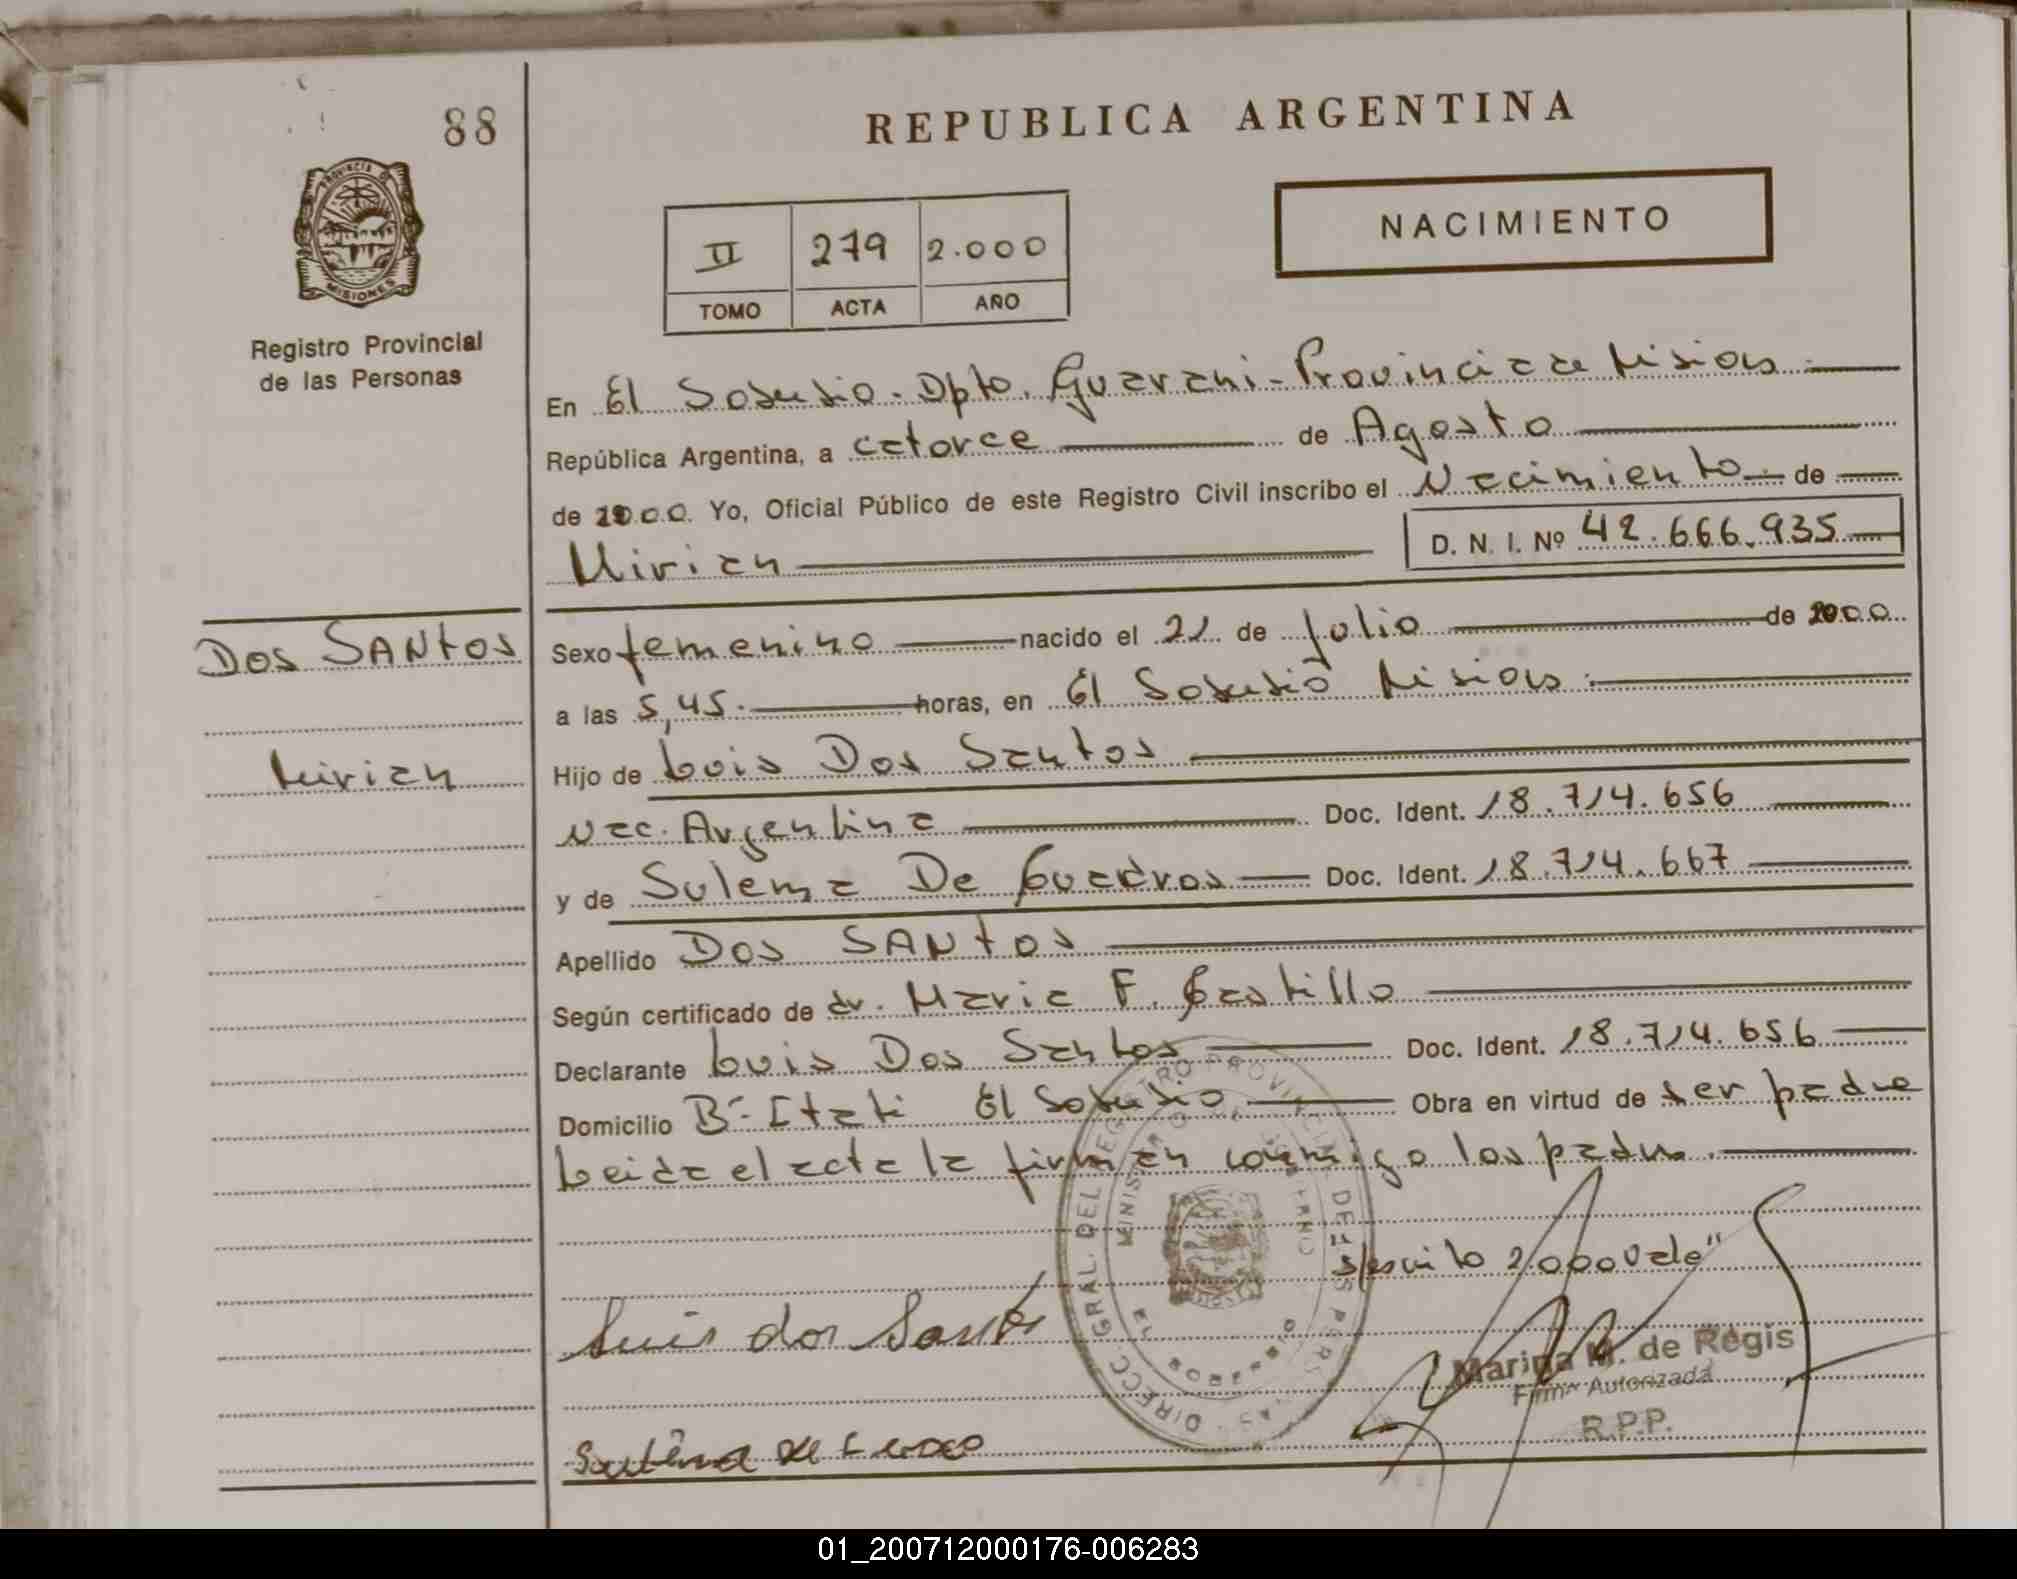 88
REPUBLICA ARGENTINA
PROVINCIA D MISIONES
II 279 2.000
TOMO ACTA AÑO
NACIMIENTO
Registro Provincial
de las Personas
En El Soberbio. Dpto. Guarani - Provincia de Misiones.
República Argentina, a catorce de Agosto
de 2000. Yo, Oficial Público de este Registro Civil inscribo el Nacimiento de
Mirian
D. N. I. Nº 42.666.935
DOS SANtOS
Mirian
Sexo femenino nacido el 21 de Julio de 2000
a las 5,45. horas, en El Soberbio Misiones.
Hijo de Luis Dos Santos
Nac. Argentina Doc. Ident. 18.714.656
y de Sulema De Cuadros Doc. Ident. 18.714.667
Apellido DOS SANtOS
Según certificado de dr. Maria F. Castillo
Declarante Luis Dos Santos Doc. Ident. 18.714.656
Domicilio Bº Itati El Soberbio Obra en virtud de ser padre
Leida el acta la firman conmigo los padres.
s/escrito 2.000 Vale"
Luis dos Santos
DIRECC. GRAL. DEL REGISTRO PROVINCIAL DE LAS PERSONAS
MINISTERIO DE GOBIERNO
Marina M. de Regis
Firma Autorizada
R.P.P.
01_200712000176-006283